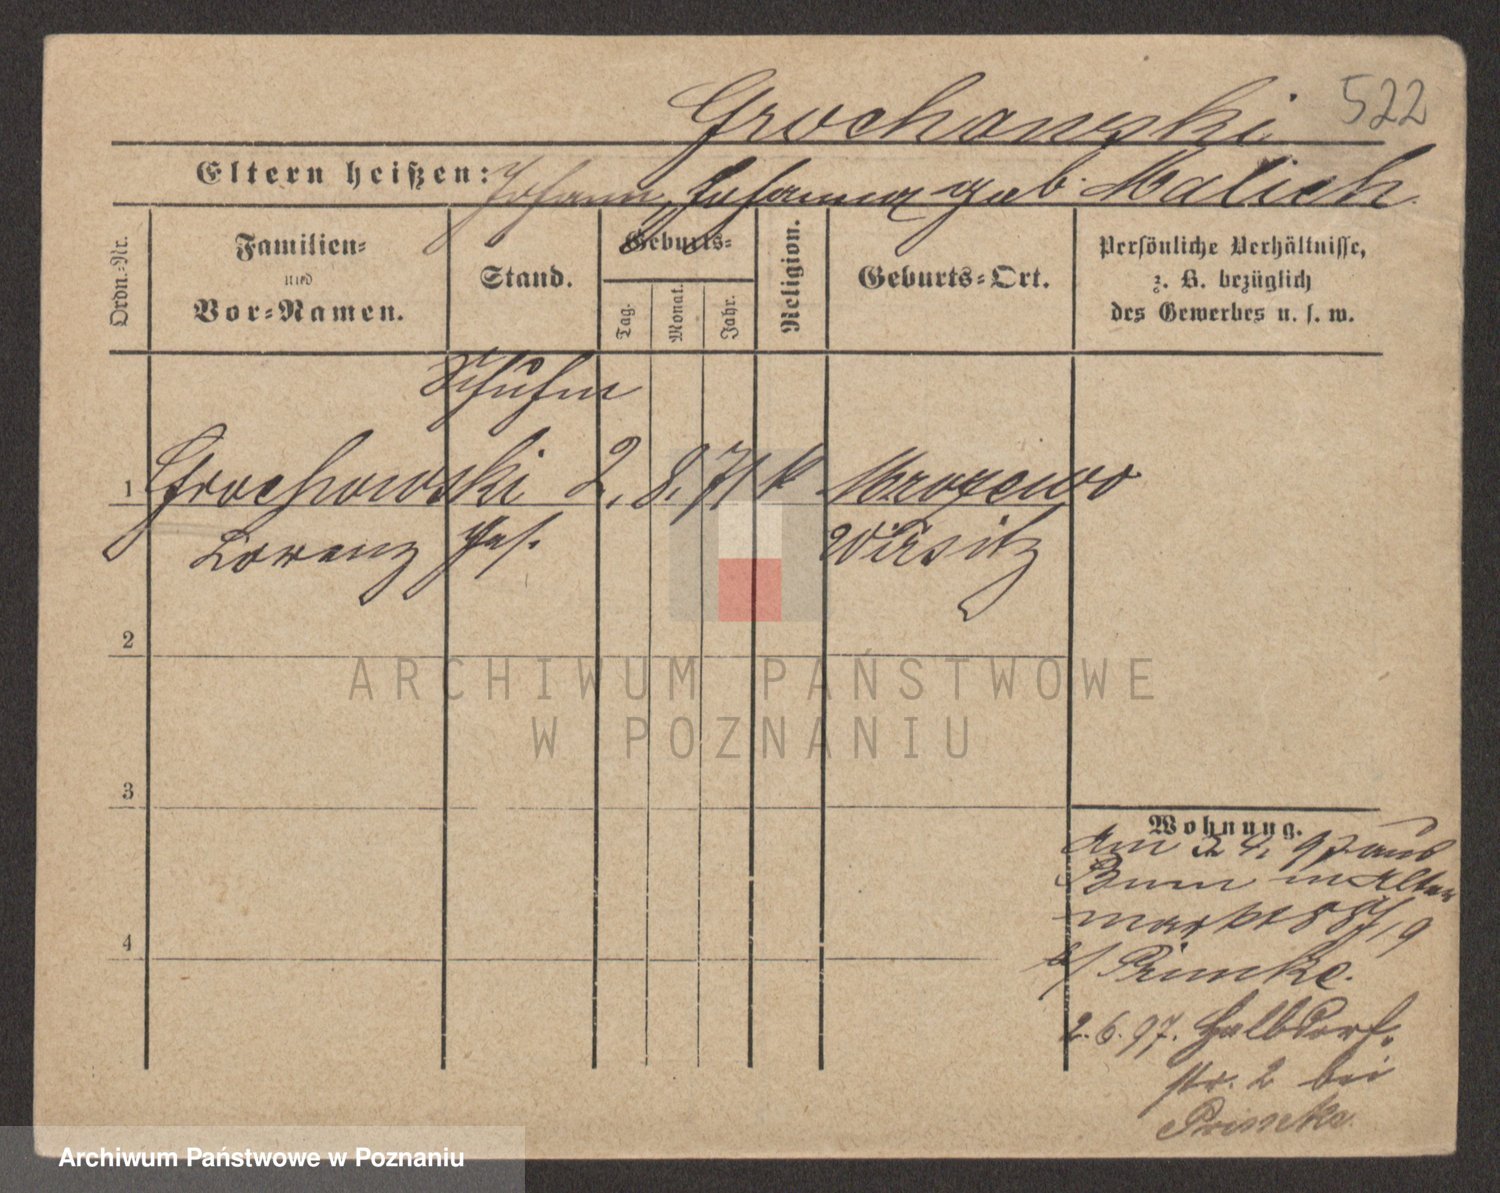 Grochowski 522
Eltern heißen: Johann, Johanna geb. Malich
Ordn.-Nr.
Familien-
und
Vor-Namen.
Stand.
Geburts-
Tag.
Monat.
Jahr.
Religion.
Geburts-Ort.
Persönliche Verhältnisse,
z. B. bezüglich
des Gewerbes u. s. w.
Schuhm
1 Grochowski 2. 8. 71 k Mrozewo
Lorenz Ges. Wirsitz
2
3
4
Wohnung.
am 2 4. 97 aus
in Alter
markt 88/19
b/ Primke.
2. 6. 97. Halbdorf-
str. 2 bei
Primke
ARCHIWUM PAŃSTWOWE
W POZNANIU
Archiwum Państwowe w Poznaniu